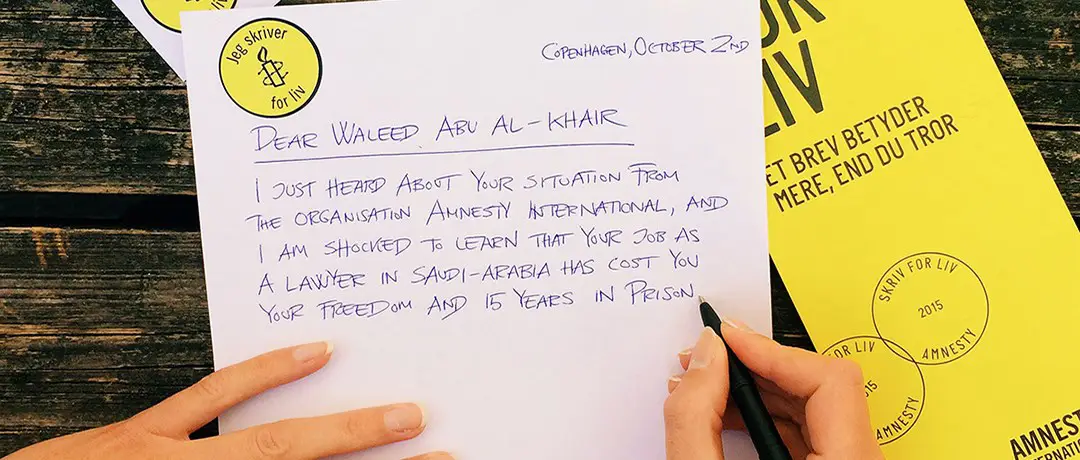 Jeg skriver
for liv
COPENHAGEN, OCTOBER 2ND
DEAR WALEED ABU AL-KHAIR
I JUST HEARD ABOUT YOUR SITUATION FROM
THE ORGANISATION AMNESTY INTERNATIONAL, AND
I AM SHOCKED TO LEARN THAT YOUR JOB AS
A LAWYER IN SAUDI-ARABIA HAS COST YOU
YOUR FREEDOM AND 15 YEARS IN PRISON
LIV
ET BREV BETYDER
MERE, END DU TROR
SKRIV FOR LIV
2015
AMNESTY
FOR LIV
AMNESTY